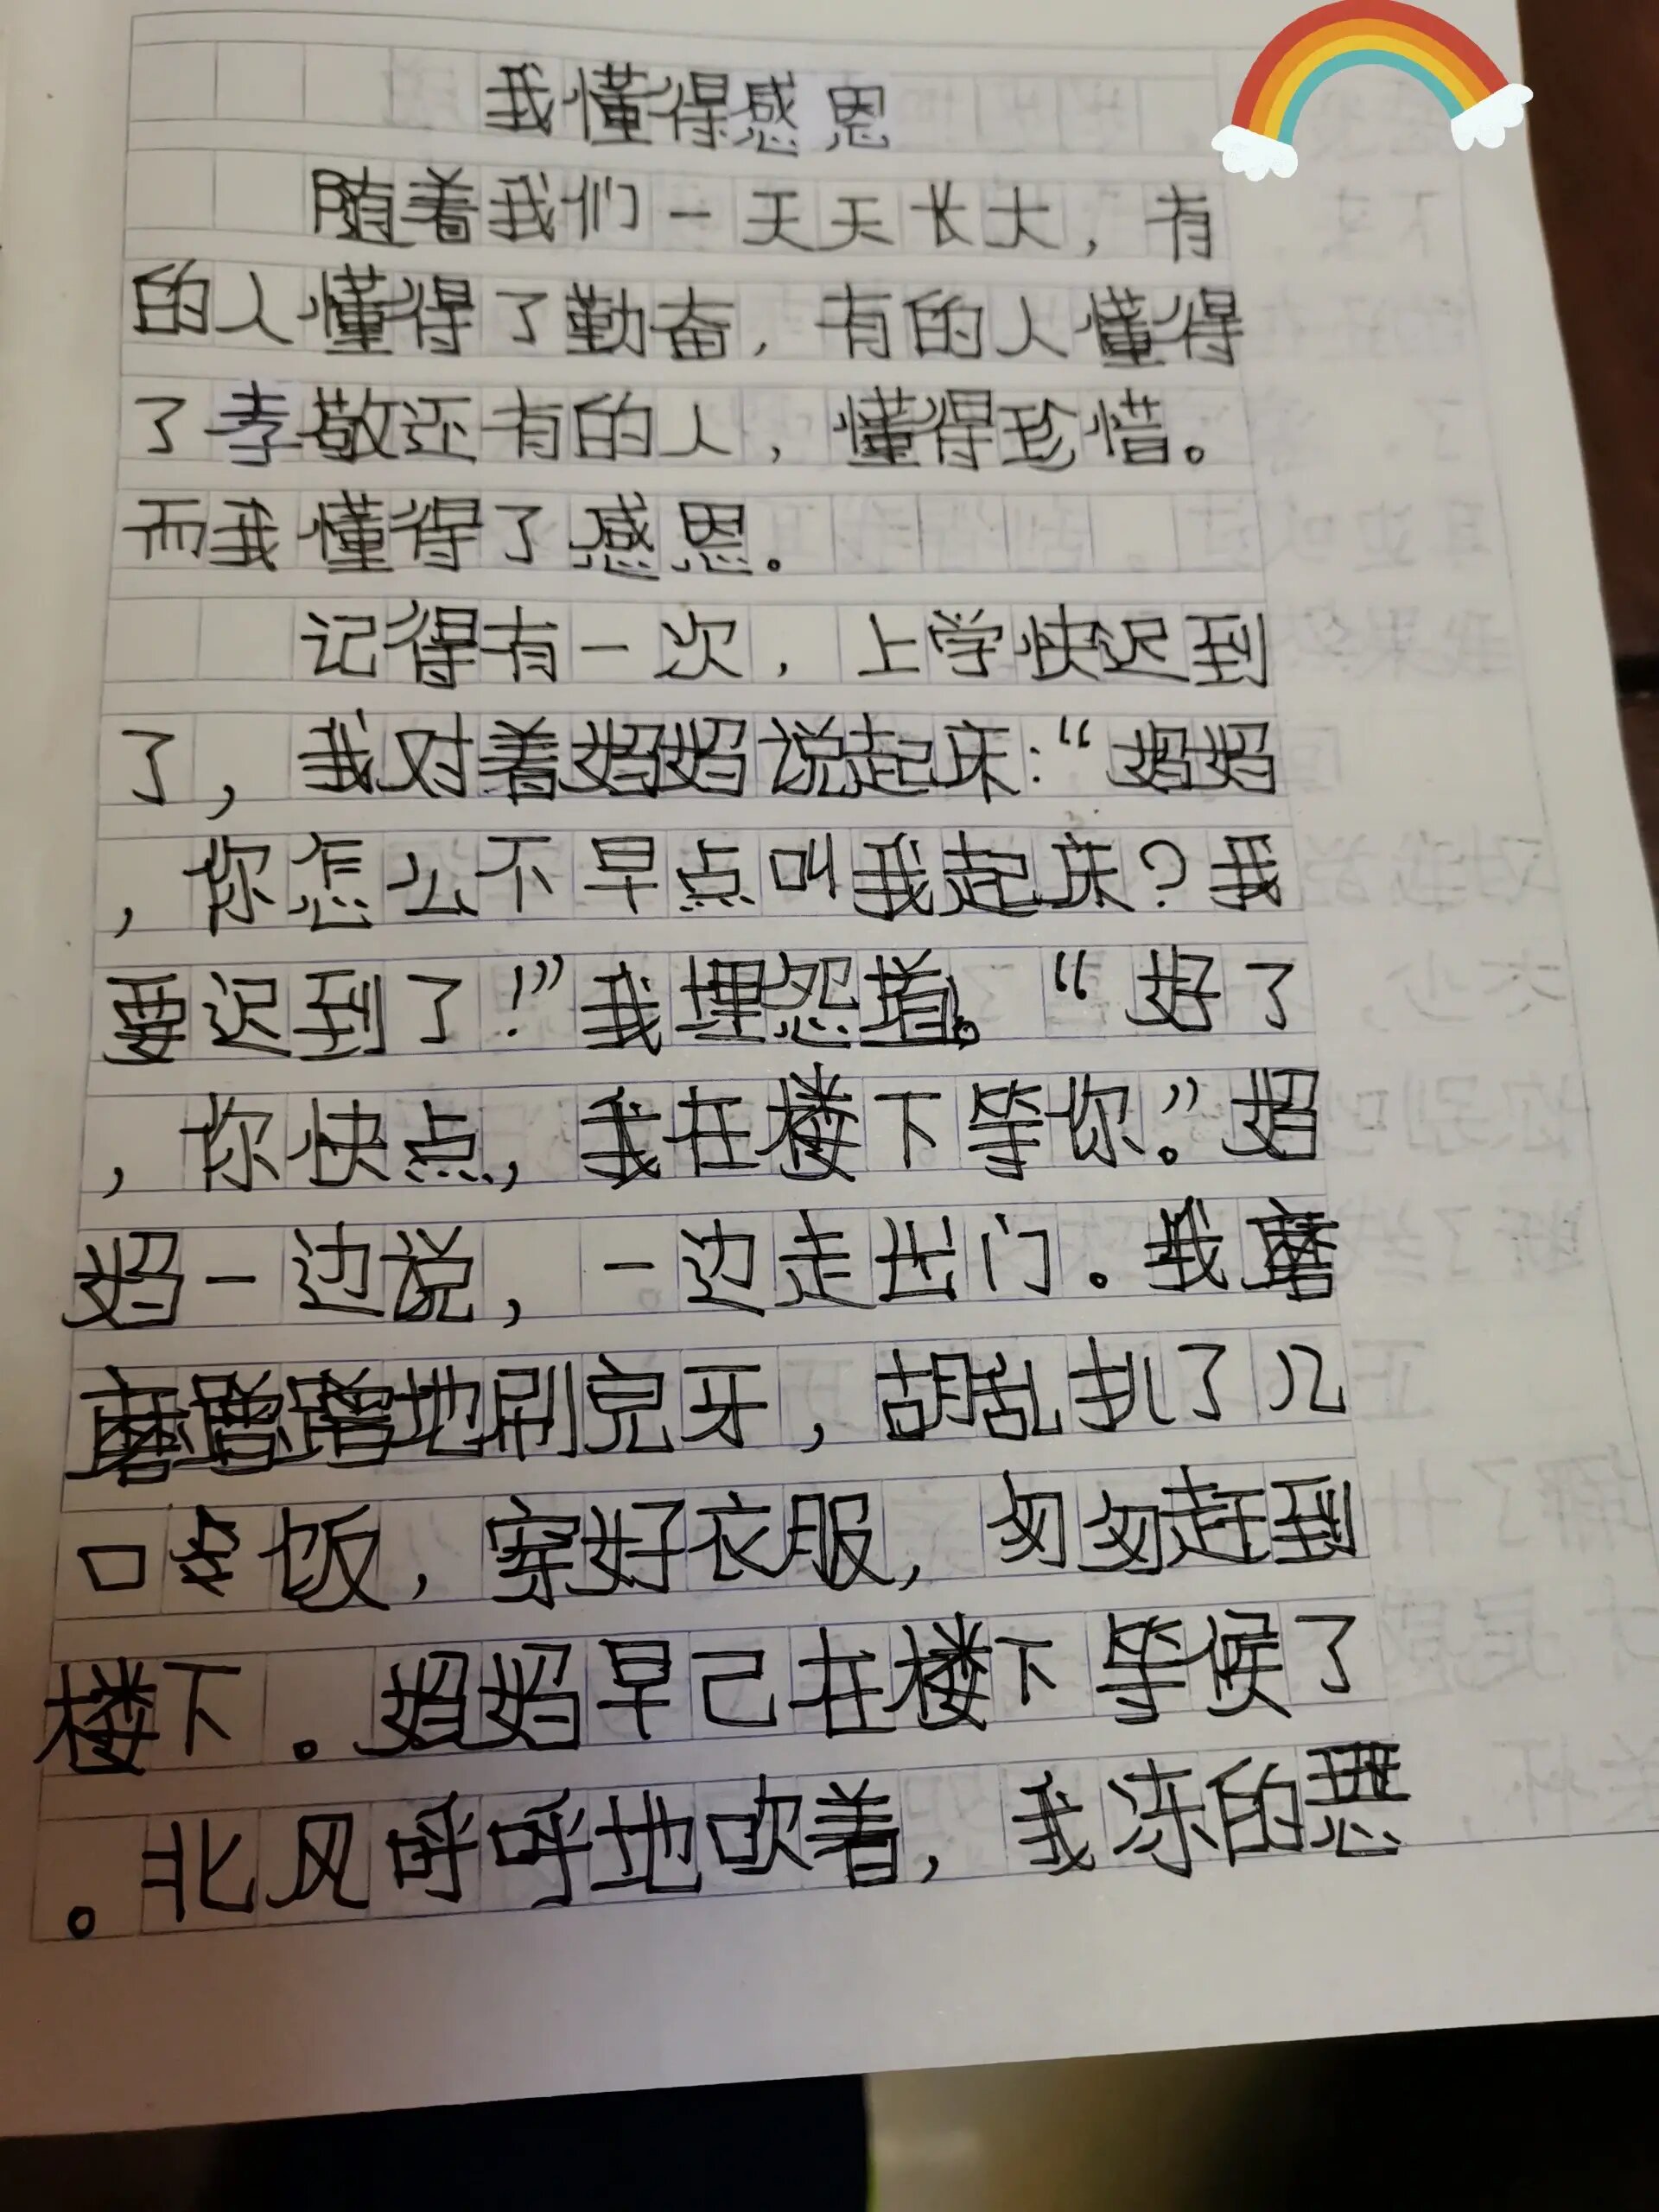 我懂得感恩
随着我们一天天长大，有
的人懂得了勤奋，有的人懂得
了孝敬还有的人，懂得珍惜。
而我懂得了感恩。
记得有一次，上学快迟到
了，我对着妈妈说起床：“妈妈
，你怎么不早点叫我起床？我
要迟到了！”我埋怨道。“好了
，你快点，我在楼下等你。”妈
妈一边说，一边走出门。我磨
磨蹭蹭地刷完牙，胡乱扒了几
口冬饭，穿好衣服，匆匆赶到
楼下。妈妈早己在楼下等候了
。北风呼呼地吹着，我冻的